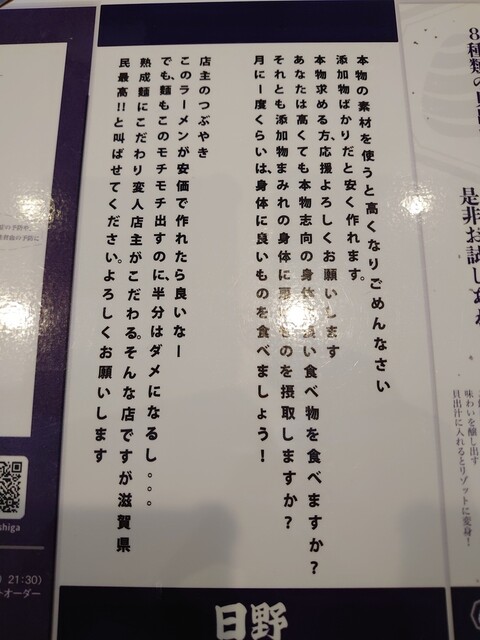 8種類の
是非お試し
味わいを醸し出す
貝出汁に入れるとリゾットに変身!
本物の素材を使うと高くなりごめんなさい
添加物ばかりだと安く作れます。
本物求める方、応援よろしくお願いします
あなたは高くても本物志向の身体に良い食べ物を食べますか?
それとも添加物まみれの身体に悪いものを摂取しますか?
月に一度くらいは、身体に良いものを食べましょう!
店主のつぶやき
このラーメンが安価で作れたら良いなー
でも、麺もこのモチモチ出すのに、半分はダメになるし。。。
熟成麺にこだわり変人店主がこだわる。そんな店ですが滋賀県
民最高!!と叫ばせてください。よろしくお願いします
日野
の予防や、
higa
21:30)
オーダー